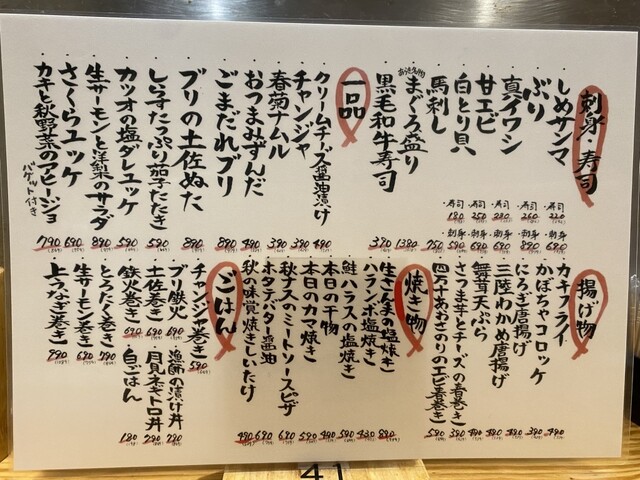 刺身・寿司
しめサンマ
ぶり
真イワシ
甘エビ
白とり貝
馬刺し
まぐろ盛り
黒毛和牛寿司
・寿司 220
・刺身 680
・寿司 260
・刺身 890
・寿司 280
・刺身 690
・寿司 250
・刺身 690
・寿司 180
・刺身 590
750
1380
370
一品
クリームチーズ醤油漬け 490
チャンジャ 390
春菊ナムル 390
おつまみずんだ 490
ごまだれブリ 890
ブリの土佐ぬた 890
しらすたっぷり茄子たたき 590
カツオの塩ダレユッケ 590
生サーモンと洋梨のサラダ 890
さくらユッケ 690
カキと秋野菜のアヒージョ 790
バゲット付き
揚げ物
カキフライ 490
かぼちゃコロッケ 390
にろぎ唐揚げ 490
三陸わかめ唐揚げ 490
舞茸天ぷら 490
さつま芋とチーズの春巻き 390
四万十あおさのりのエビ春巻き 590
焼き物
生さんまの塩焼き 890
ハランボ塩焼き 430
鮭ハラスの塩焼き 590
本日の干物 490
本日のカマ焼き 590
秋ナスのミートソースピザ 690
ホタテバター醤油 690
秋の味覚焼きしいたけ 490
ごはん
チャンジャ巻き 590
ブリ鉄火 690
土佐巻き 690
鉄火巻き 690
とろたく巻き 790
生サーモン巻き 690
上うなぎ巻き 990
漁師の漬け丼 790
月見ネギトロ丼 790
白ごはん 180
41